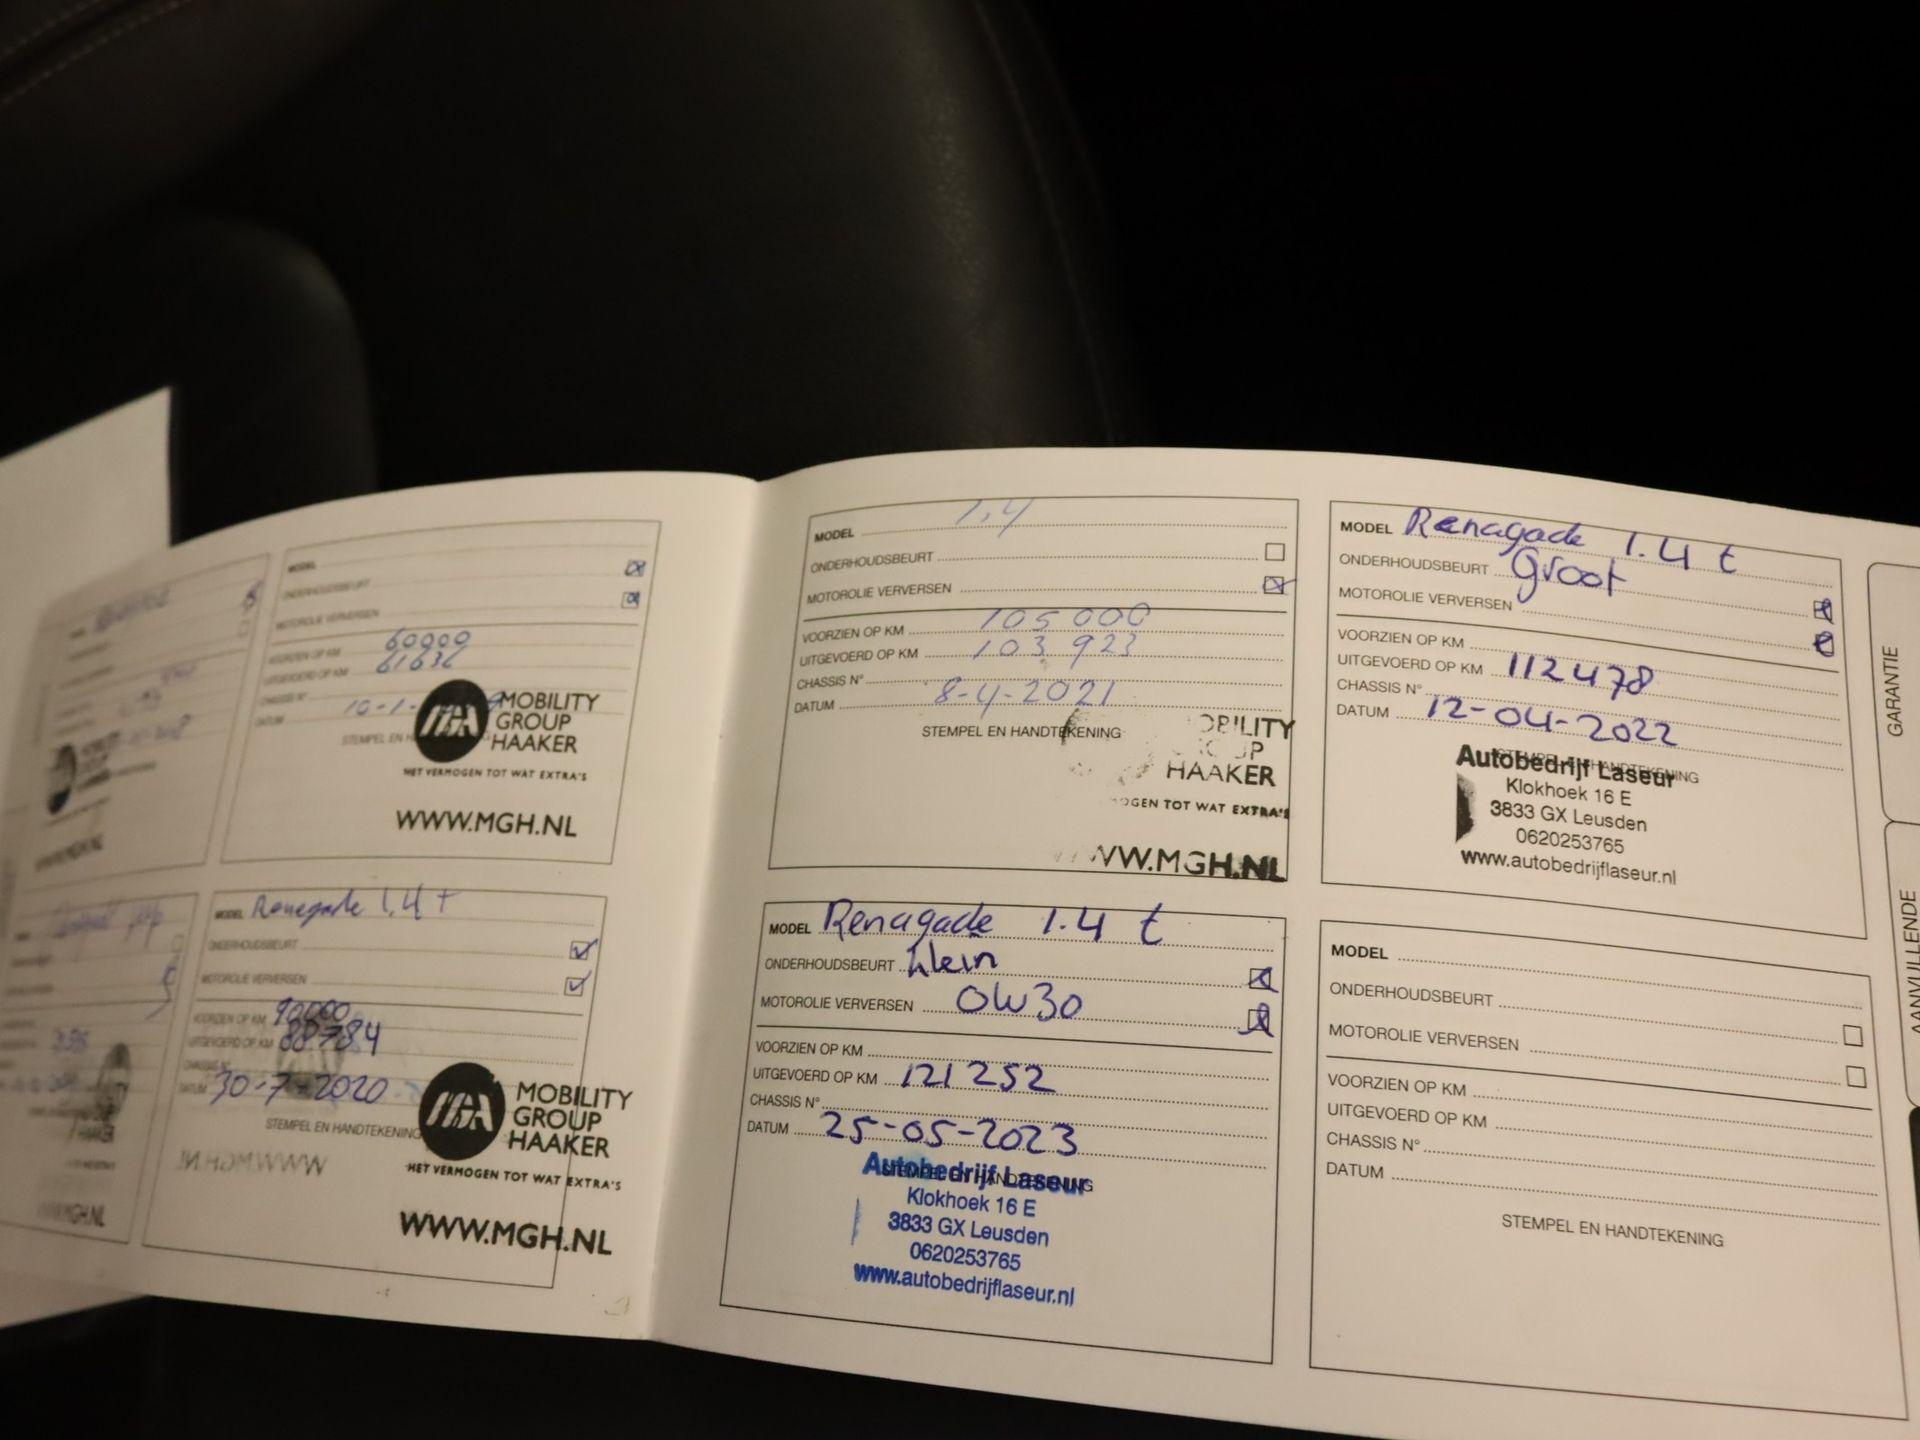 MODEL
ONDERHOUDSBEURT
MOTOROLIE VERVERSEN
VOORZIEN OP KM 60000
UITGEVOERD OP KM 61636
CHASSIS N°
DATUM 10-1-
STEMPEL EN
MOBILITY
GROUP
HAAKER
HET VERMOGEN TOT WAT EXTRA'S
WWW.MGH.NL
WWW.MGH.NL
MODEL Renegade 1,4 t
ONDERHOUDSBEURT
MOTOROLIE VERVERSEN
VOORZIEN OP KM 90000
UITGEVOERD OP KM 88784
CHASSIS N°
DATUM 30-7-2020
STEMPEL EN HANDTEKENING
MOBILITY
GROUP
HAAKER
HET VERMOGEN TOT WAT EXTRA'S
WWW.MGH.NL
WWW.MGH.NL
HAAKER
WWW.MGH.NL
MODEL 1,4
ONDERHOUDSBEURT
MOTOROLIE VERVERSEN
VOORZIEN OP KM 105000
UITGEVOERD OP KM 103923
CHASSIS N°
DATUM 8-4-2021
STEMPEL EN HANDTEKENING
OBILITY
UP
HAAKER
OGEN TOT WAT EXTRA'S
WW.MGH.NL
MODEL Renagade 1.4 t
ONDERHOUDSBEURT Groot
MOTOROLIE VERVERSEN
VOORZIEN OP KM
UITGEVOERD OP KM 112478
CHASSIS N°
DATUM 12-04-2022
STEMPEL EN HANDTEKENING
Autobedrijf Laseur
Klokhoek 16 E
3833 GX Leusden
0620253765
www.autobedrijflaseur.nl
MODEL Renagade 1.4 t
ONDERHOUDSBEURT klein
MOTOROLIE VERVERSEN 0W30
VOORZIEN OP KM
UITGEVOERD OP KM 121252
CHASSIS N°
DATUM 25-05-2023
STEMPEL EN HANDTEKENING
Autobedrijf Laseur
Klokhoek 16 E
3833 GX Leusden
0620253765
www.autobedrijflaseur.nl
MODEL
ONDERHOUDSBEURT
MOTOROLIE VERVERSEN
VOORZIEN OP KM
UITGEVOERD OP KM
CHASSIS N°
DATUM
STEMPEL EN HANDTEKENING
GARANTIE
AANVULLENDE